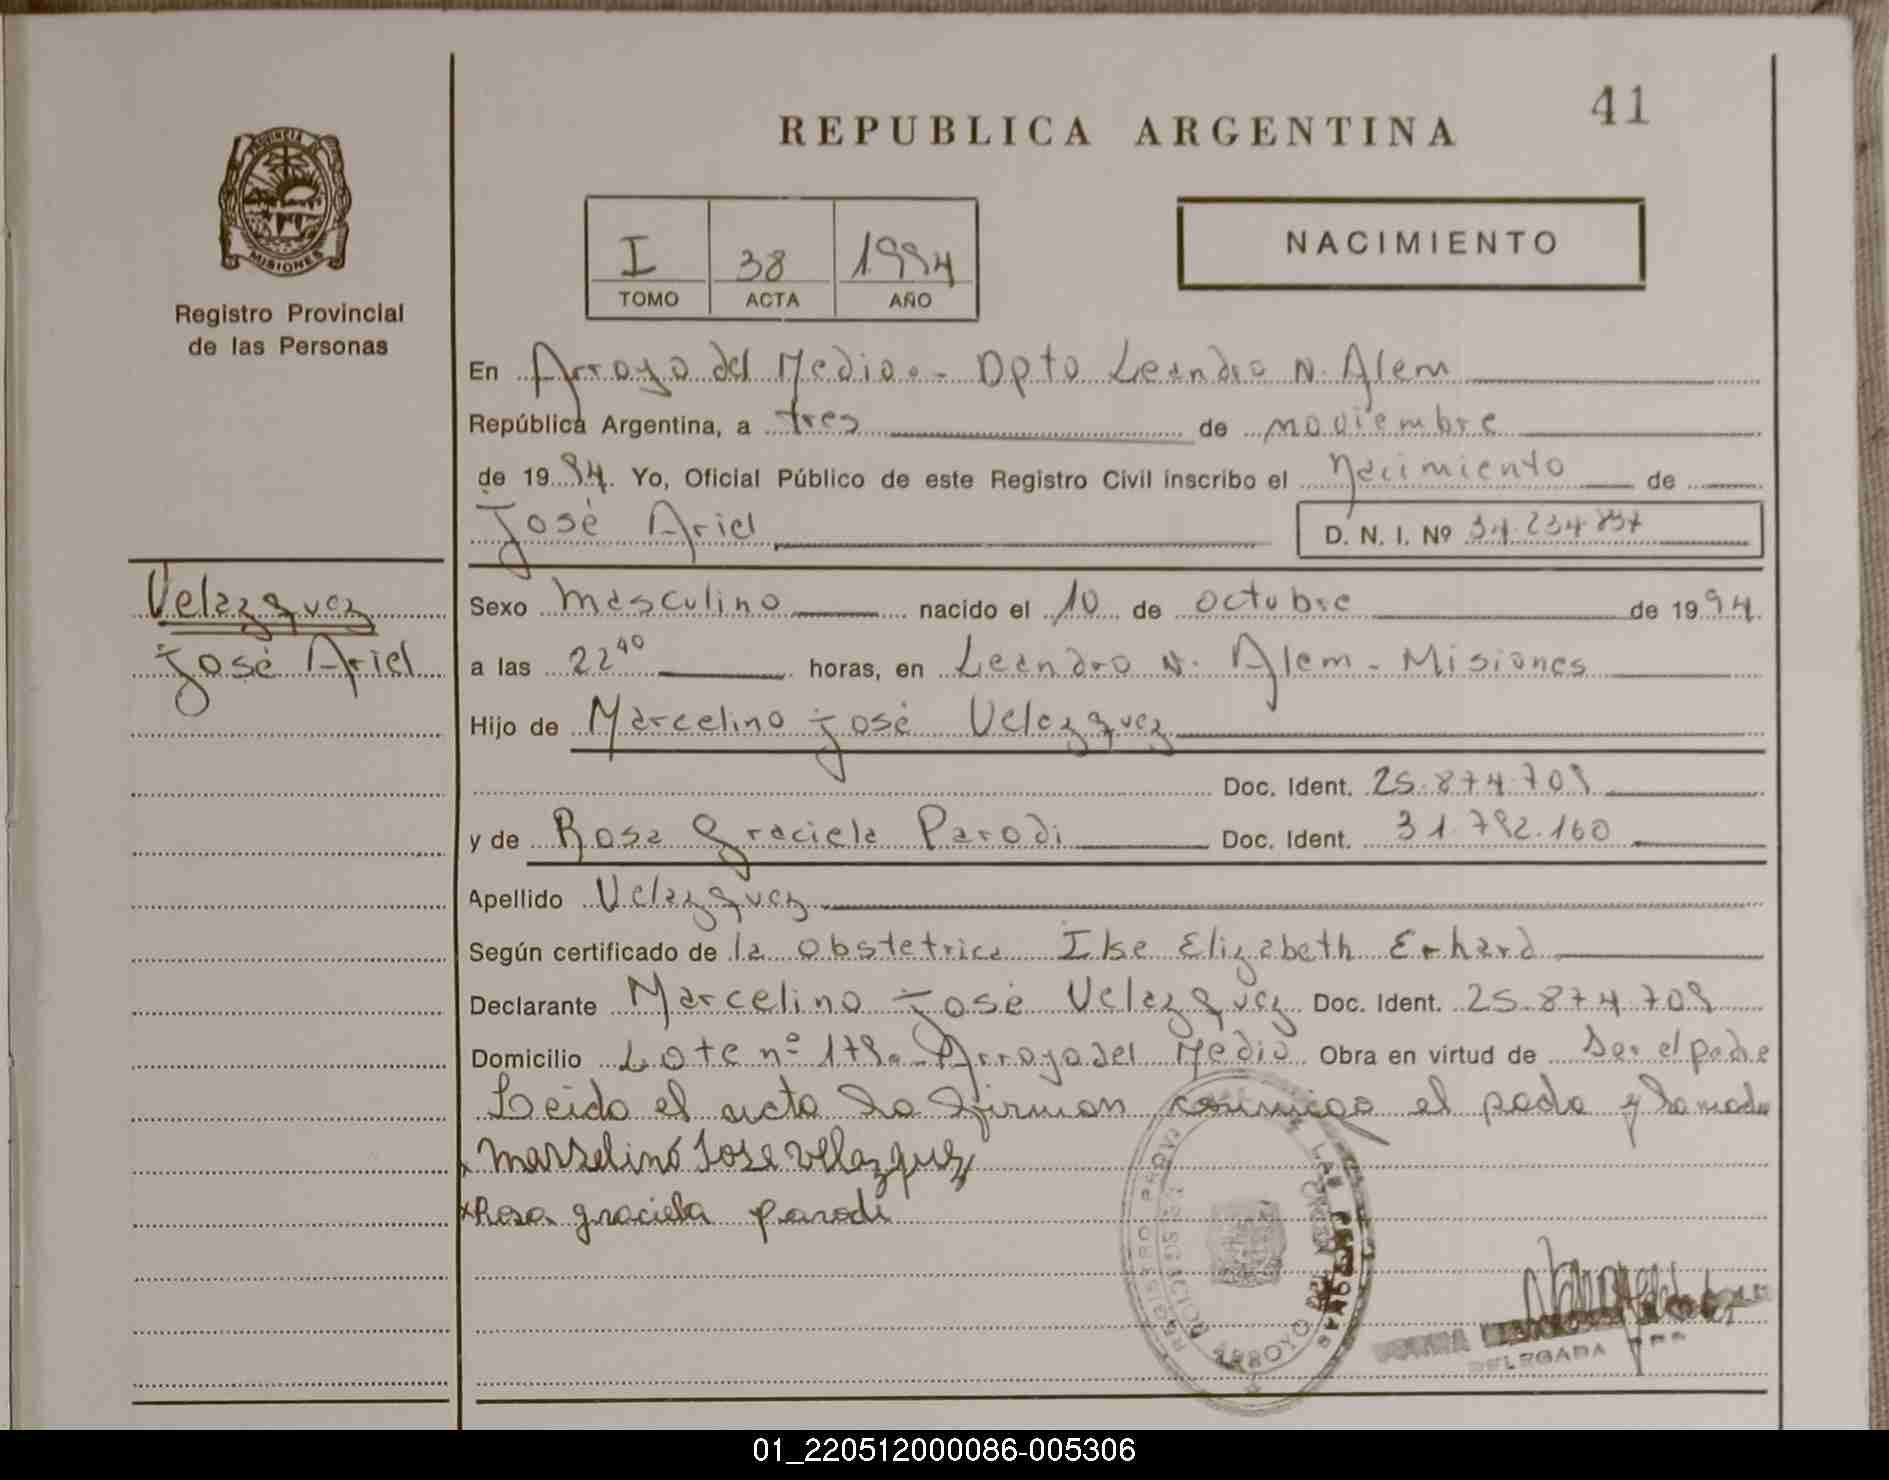 41
REPUBLICA ARGENTINA
PROVINCIA DE
MISIONES
Registro Provincial
de las Personas
I 38 1994
TOMO ACTA AÑO
NACIMIENTO
En Arroyo del Medio.- Dpto Leandro N. Alem
República Argentina, a tres de noviembre
de 1994. Yo, Oficial Público de este Registro Civil inscribo el nacimiento de
José Ariel D. N. I. Nº 34.234.
Velazquez
José Ariel
Sexo masculino nacido el 10 de octubre de 1994.
a las 22 40 horas, en Leandro N. Alem - Misiones
Hijo de Marcelino José Velazquez
Doc. Ident. 25.874.709
y de Rosa Graciela Parodi Doc. Ident. 31.792.160
Apellido Velazquez
Según certificado de la obstetrica Ilse Elizabeth Erhard
Declarante Marcelino José Velazquez Doc. Ident. 25.874.709
Domicilio Lote nº 179.- Arroyo del Medio Obra en virtud de ser el padre
Leido el acta la firman conmigo el padre y la madre
x Marselino Jose Velazquez
x Rosa graciela parodi
REGISTRO PROV. LAS PERSONAS
ARROYO
DELEGADA
01_220512000086-005306